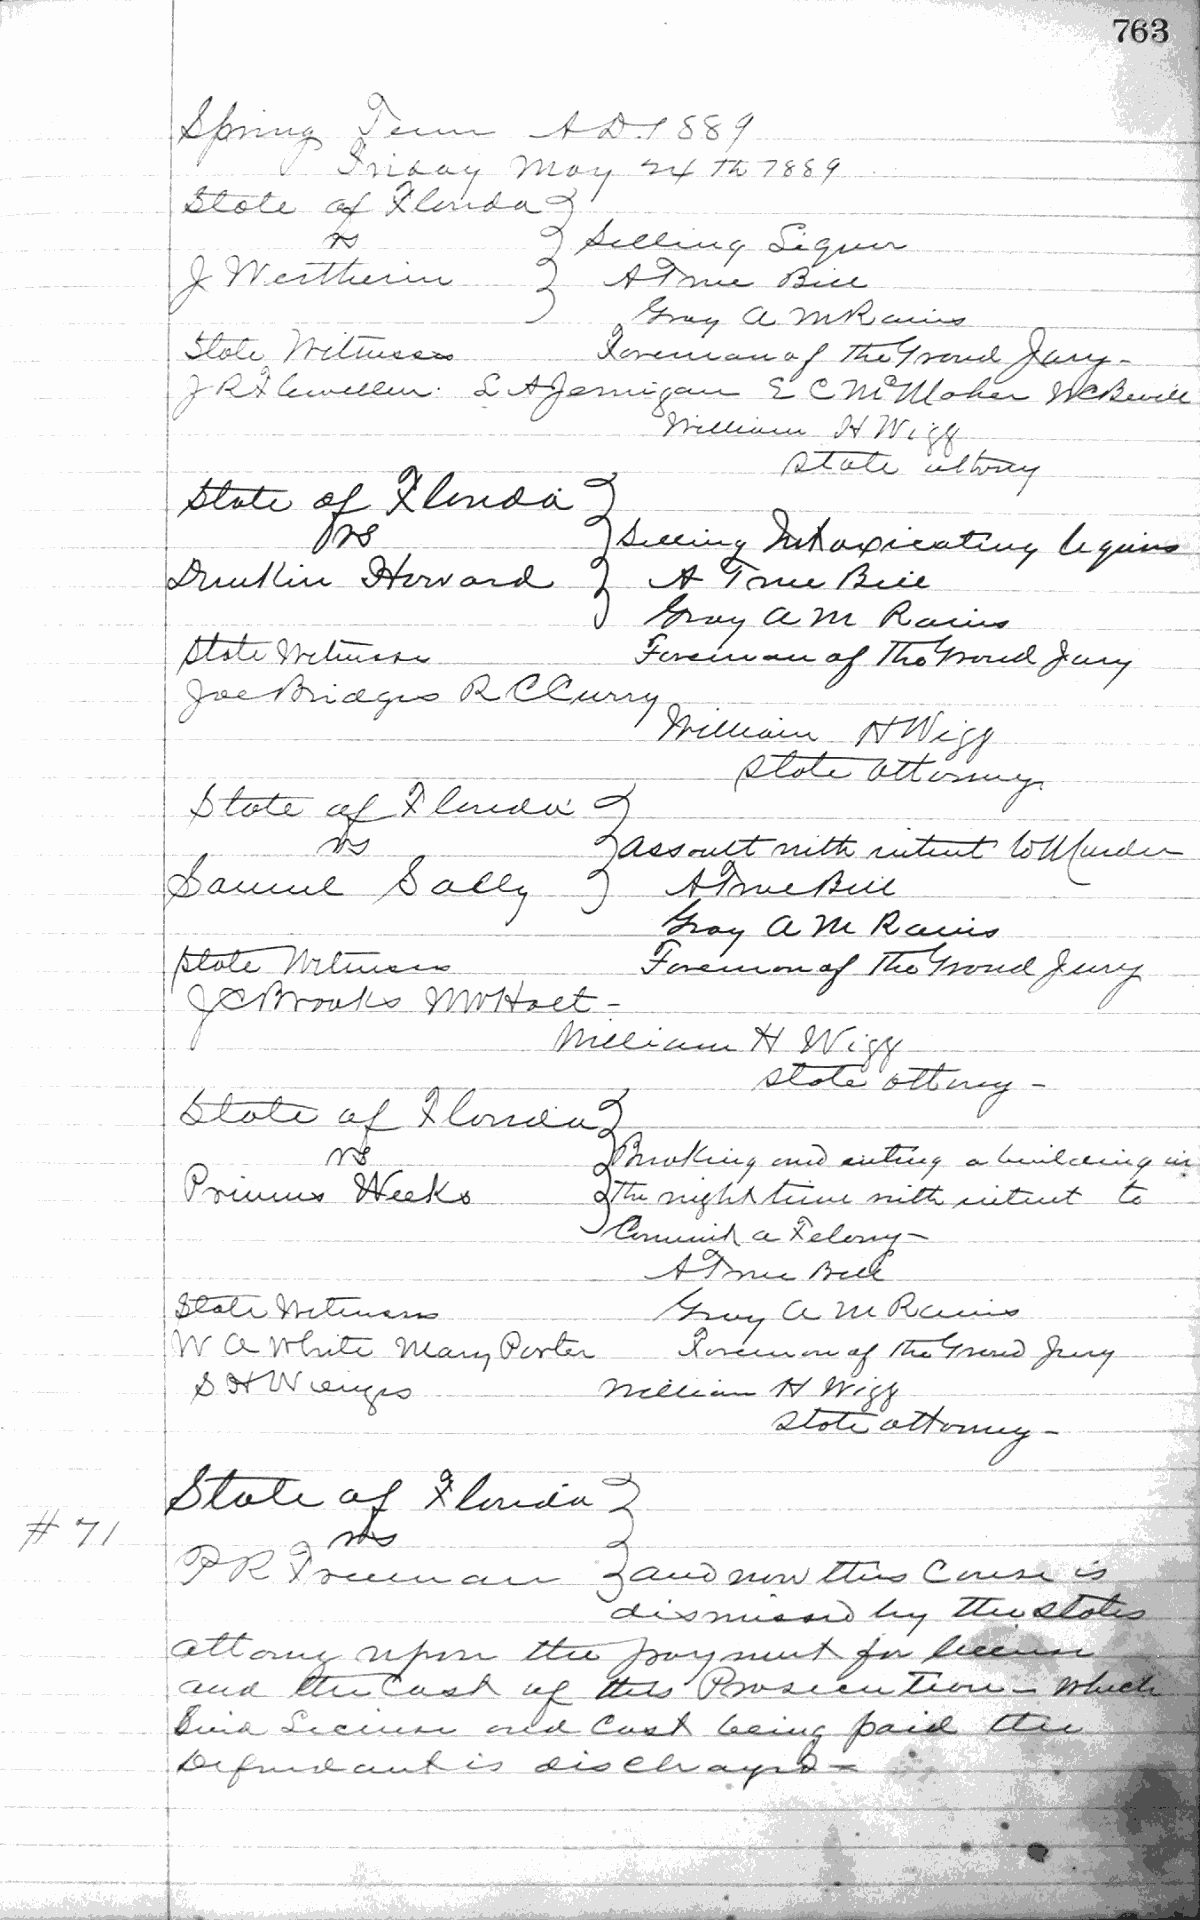 763
Spring Term A D. 1889
Friday May 24th 1889
State of Florida
vs
Selling Liquor
J Wertheim
A True Bill
Gray A M Rains
State Witnesses
Foreman of The Grand Jury-
J R Flewellen. L A Jernigan E C McMaher W C Bevill
William H Wigg
State attorny
State of Florida
vs
Selling Intoxicating liquors
Howard
A True Bill
Gray A M Rains
State Witnesses
Foreman of The Grand Jury
Joe Bridges R C Curry
William H Wigg
State Attorney
State of Florida
vs
assault with intent to Murder
Samuel Sally
A True Bill
Gray A M Rains
State Witnesses
Foreman of The Grand Jury
J C Brooks M W Holt -
William H Wigg
State attorny -
State of Florida
vs
Breaking and enting a building in
Primus Weeks
The night time with intent to
Commit a Felony-
A True Bill
State Witnesses
Gray A M Rains
W A White Mary Porter
Foreman of The Grand Jury
S H
William H Wigg
State attorney-
State of Florida
# 71
vs
P R Freeman
and now this Cause is
dismissed by the States
attorny upon the payment for license
and the Cost of this Prosecution - which
Said License and Cost being paid the
Defendant is dischargd -